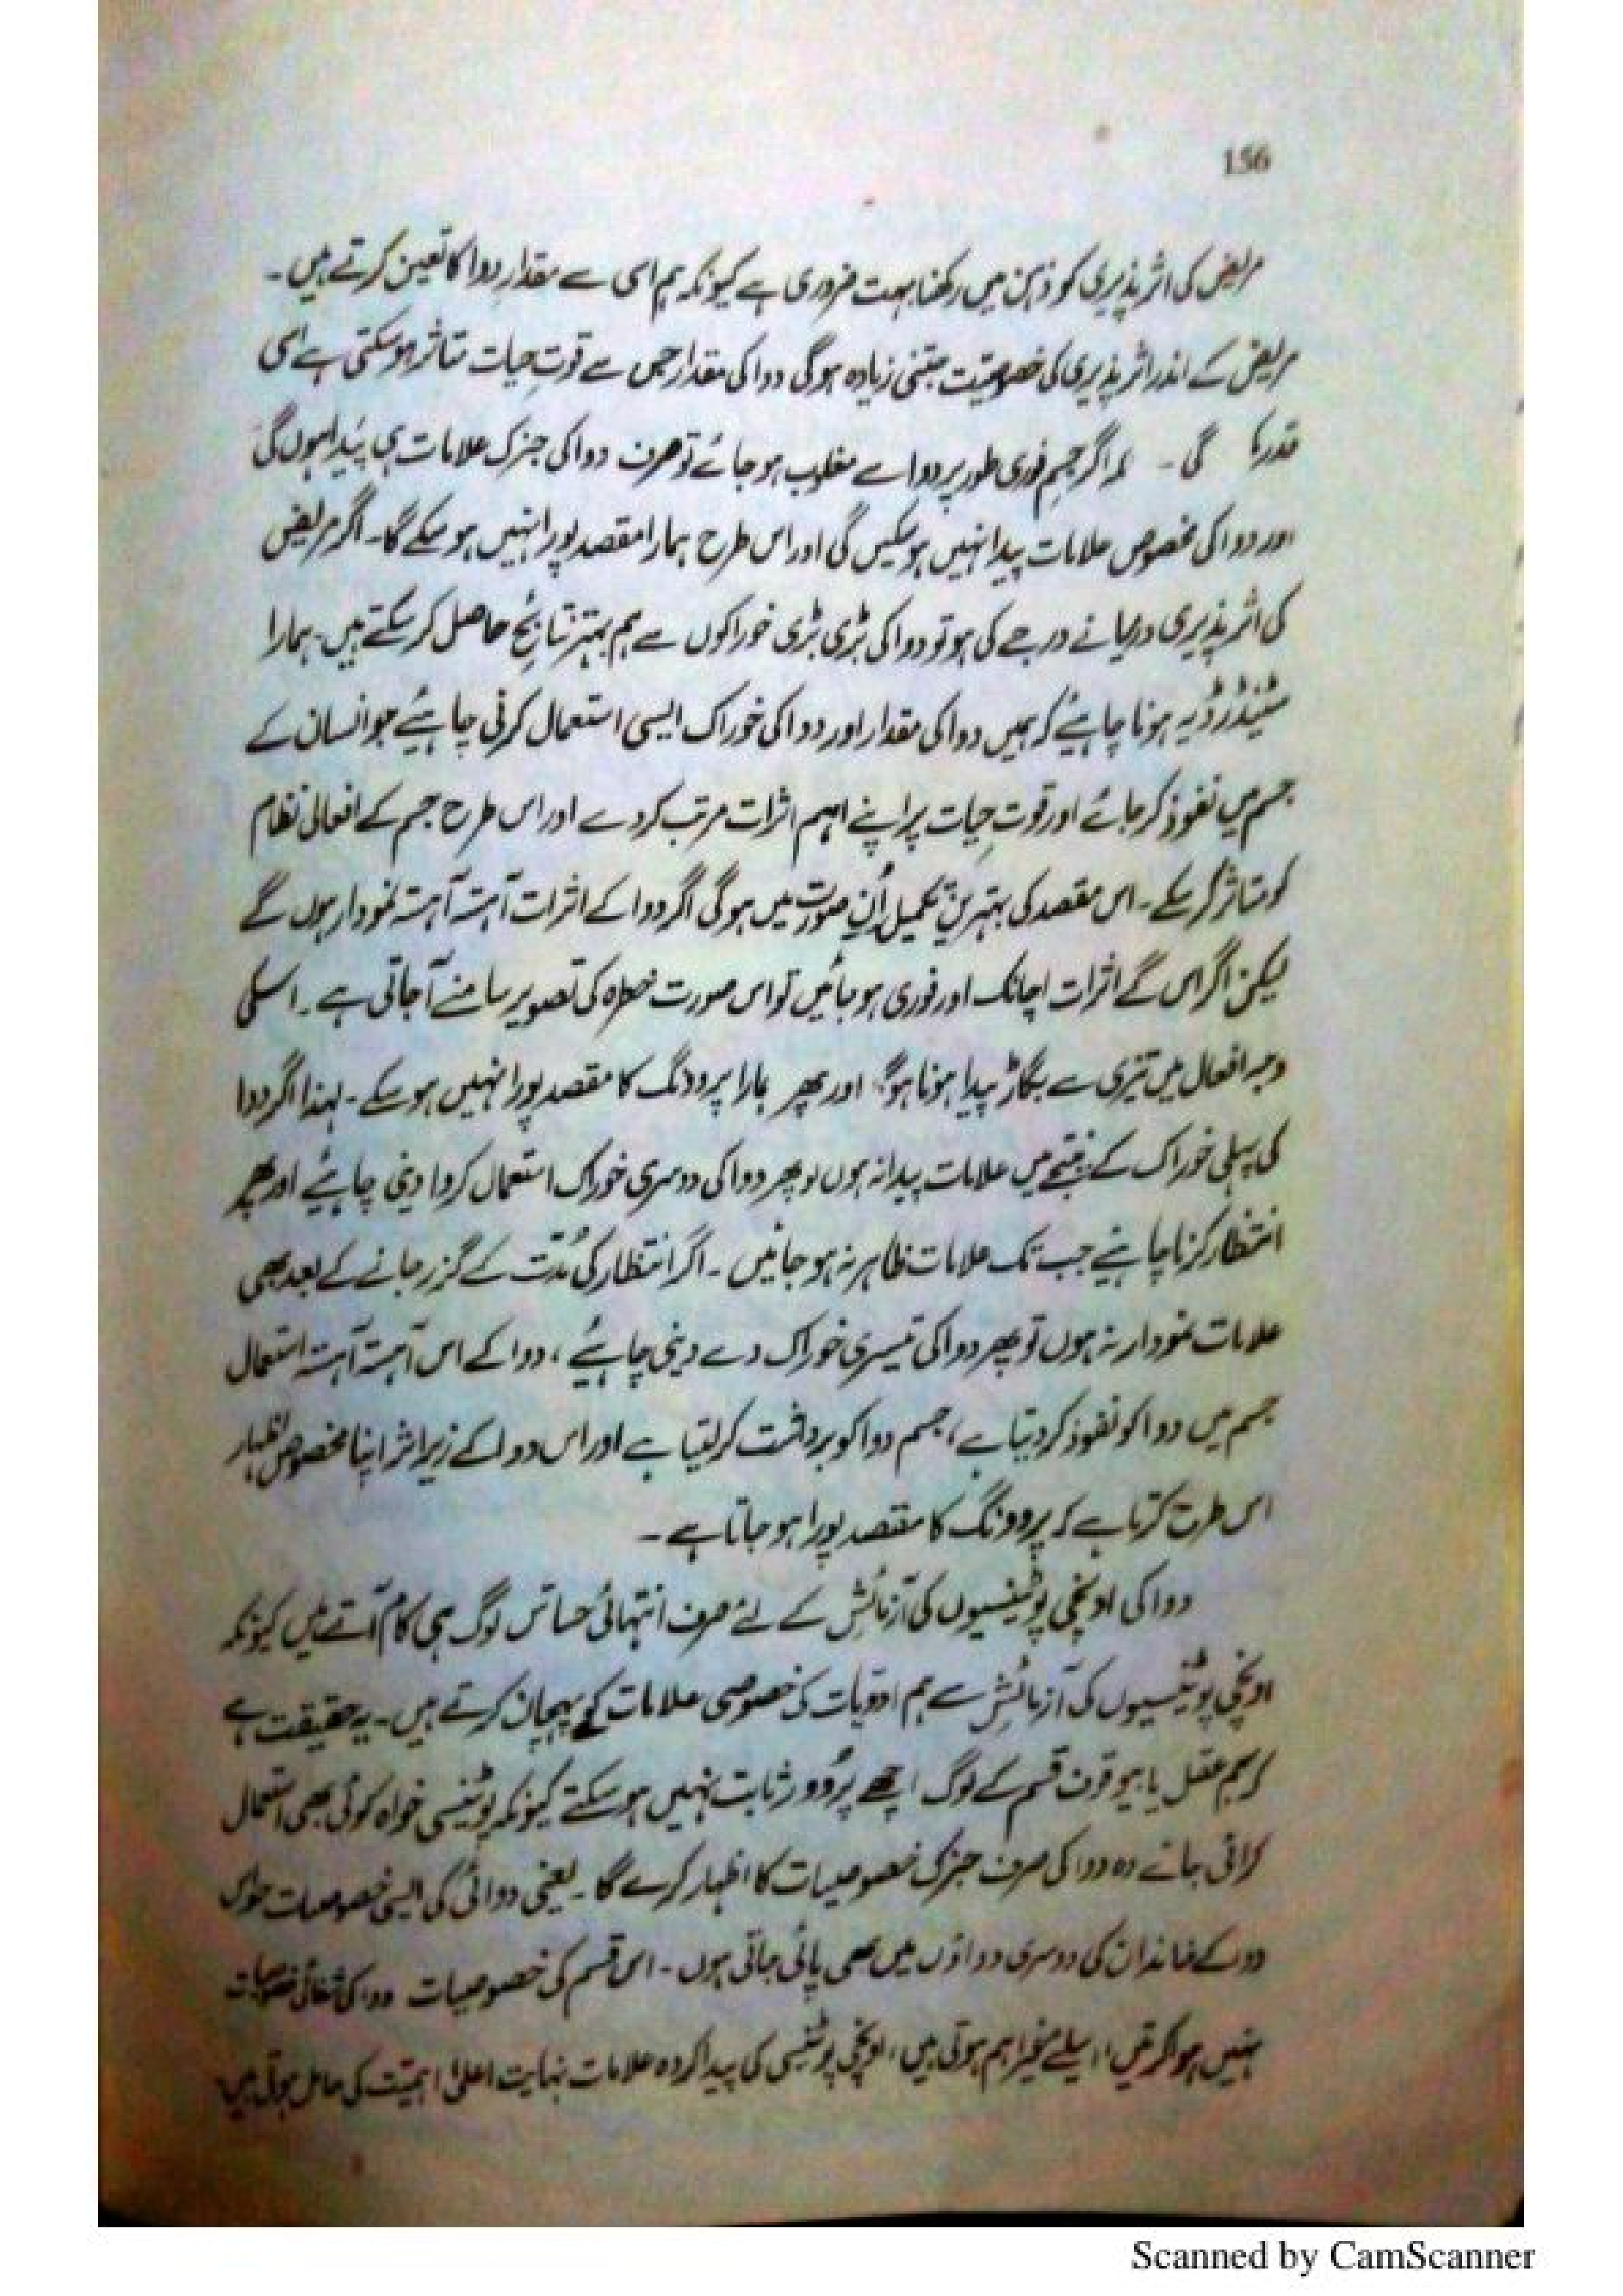 156
مریض کی اثر پذیری کو ذہن میں رکھنا بہت ضروری ہے کیونکہ ہم اسی سے مقدارِ دوا کا تعین کرتے ہیں۔
مریض کے اندر اثر پذیری کی خصوصیت جتنی زیادہ ہوگی دوا کی مقدار جس سے قوتِ حیات متاثر ہوسکتی ہے اسی
قدر گی۔ اگر جسم فوری طور پر دوا سے مغلوب ہو جائے تو صرف دوا کی جنرک علامات ہی پیدا ہوں گی
اور دوا کی مخصوص علامات پیدا نہیں ہوسکیں گی اور اس طرح ہمارا مقصد پورا نہیں ہوسکے گا۔ اگر مریض
کی اثر پذیری درمیانے درجے کی ہو تو دوا کی بڑی بڑی خوراکوں سے ہم بہتر نتائج حاصل کرسکتے ہیں۔ ہمارا
سٹینڈرڈ یہ ہونا چاہیئے کہ ہمیں دوا کی مقدار اور دوا کی خوراک ایسی استعمال کرنی چاہیئے جو انسان کے
جسم میں نفوذ کر جائے اور قوتِ حیات پر اپنے اہم اثرات مرتب کردے اور اس طرح جسم کے افعالی نظام
کو متاثر کرسکے۔ اس مقصد کی بہترین تکمیل اُن صورت میں ہوگی اگر دوا کے اثرات آہستہ آہستہ نمودار ہوں گے
لیکن اگر اس کے اثرات اچانک اور فوری ہو جائیں تو اس صورت خطرہ کی تصویر سامنے آجاتی ہے۔ اسکی
وجہ افعال میں تیزی سے بگاڑ پیدا ہونا ہوگا اور پھر ہمارا پروونگ کا مقصد پورا نہیں ہوسکے۔ لہذا اگر دوا
کی پہلی خوراک کے نتیجے میں علامات پیدا نہ ہوں تو پھر دوا کی دوسری خوراک استعمال کروا دینی چاہیئے اور پھر
انتظار کرنا چاہیئے جب تک علامات ظاہر نہ ہو جائیں۔ اگر انتظار کی مُدّت کے گزر جانے کے بعد بھی
علامات نمودار نہ ہوں تو پھر دوا کی تیسری خوراک دے دینی چاہیئے، دوا کے اس آہستہ آہستہ استعمال
جسم میں دوا کو نفوذ کر دیتا ہے، جسم دوا کو برداشت کرلیتا ہے اور اس دوا کے زیر اثر اپنا مخصوص اظہار
اس طرح کرتا ہے کہ پروونگ کا مقصد پورا ہو جاتا ہے۔
دوا کی اونچی پوٹینسیوں کی آزمائش کے لئے صرف انتہائی حساس لوگ ہی کام آتے ہیں کیونکہ
اونچی پوٹینسیوں کی آزمائش سے ہم ادویات کی خصوصی علامات کی پہچان کرتے ہیں۔ یہ حقیقت ہے
کہ ہم عقل یا بیوقوف قسم کے لوگ اچھے پرُوور ثابت نہیں ہوسکتے کیونکہ پوٹینسی خواہ کوئی بھی استعمال
کرائی جائے وہ دوا کی صرف جنرک خصوصیات کا اظہار کرے گا۔ یعنی دوائی کی ایسی خصوصیات جو اس
دوا کے خاندان کی دوسری دواؤں میں بھی پائی جاتی ہوں۔ اس قسم کی خصوصیات دوا کی شفائی خصوصیات
نہیں ہوا کرتیں، اسیلئے غیر اہم ہوتی ہیں، اونچی پوٹینسی کی پیدا کردہ علامات نہایت اعلیٰ اہمیّت کی حامل ہوتی ہیں
Scanned by CamScanner